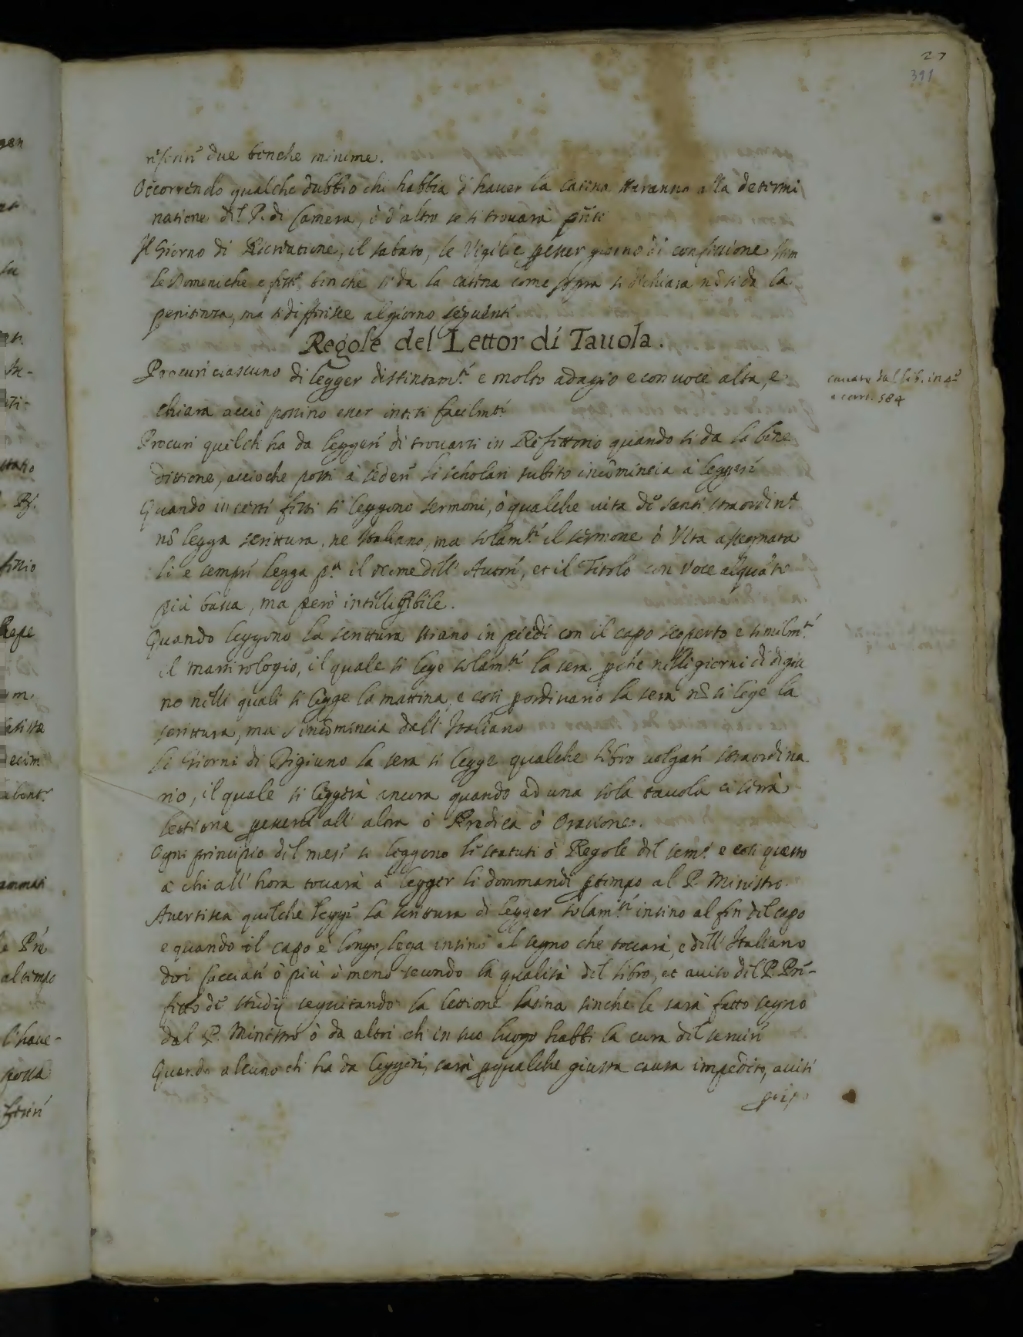 27
311
due benche minime.
Occorrendo qualche dubbio chi habbia d'haver la Casina staranno alla determi
natione del P. di Camera, ò d'altro se si trouarà
Il Giorno di Ricreatione, il sabato, le Vigilie giorno di confessione
le Domeniche e feste benche si da la casina come sopra si dichiara nõ si dà la
penitenza, ma si differisce al giorno seguente
Regole del Lettor di Tauola.
Procuri ciascuno di legger distintam.te e molto adagio e con uoce alta, e
chiara acciò possino esser intesi facilmte
cauato dal lib. in 4.o
a cart. 584
Procuri quel ch' ha da leggere di trouarsi in Refettorio quando si da la bene
dittione, accioche posti à sedere li scholari subito incõmincia à leggere
Quando in certi feste si leggono sermoni, ò qualche uita de santi straordin.a
nõ legga scrittura, ne Italiano, ma solam.te il sermone ò Vita assegnata
li e sempre legga p.a il nome dell' Autore, et il Titolo con voce alquãto
più bassa, ma però intelligibile.
Quando leggono la scrittura stiano in piedi con il capo scoperto e similm.te
il martirologio, il quale si lege solam.te la sera perche nelli giorni di digiu
no nelli quali si legge la mattina, e cosi pordinario la sera nõ si lege la
scrittura, ma s'incõmincia dall' Italiano
Li Giorni di Digiuno la sera si legge qualche libro uolgare straordina
rio, il quale si leggerà ancora quando ad una sola tauola ci sarà
lettione all' altra ò Predica ò Oratione.
Ogni principio del mese si leggono li statuti ò Regole del sem.o e cosi questo
a chi all' hora toccarà à legger li dommandi p tempo al P. Ministro
Auertisca quel che legge la scrittura di legger solam.te insino al fin del capo
e quando il capo è longo, lega insino al segno che toccarà, e dell' Italiano
dieci facciate ò più ò meno secondo la qualità del libro, et auiso del P. Pre-
fetto de studij seguitando la lettione latina sinche le sarà fatto segno
dal P. Ministro ò da altri ch in suo luogo habbi la cura del
Quando alcuno ch ha da leggere, sarà p qualche giusta causa impedito, auisi